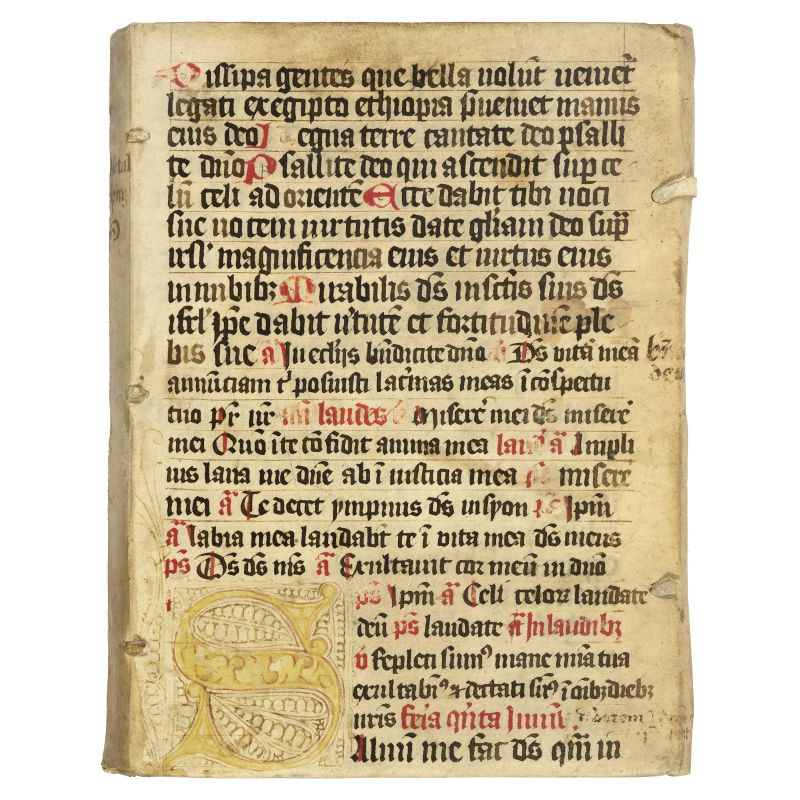 Dissipa gentes que bella volūt veniēt
legati ex egipto ethiopia p̄veniet manus
eius deo Regna terre cantate deo psalli
te dn̄o Psallite deo qui ascendit sup ce
lū celi ad orientē Ecce dabit tibi voci
sue vocem virtutis date gl̄iam deo sup̄
isrl' magnificencia eius et virtus eius
in nubibꝫ Mirabilis ds̄ in sctīs suis ds̄
isrl' ip̄e dabit v'tutē et fortitudinē ple
bis sue a͞ In ecl'iis bn̄dicite dn̄o Ds̄ vitā meā
annūciavi t' posuisti lac'mas meas ī cōspectu
tuo pr̄ nr̄ In laudes Misere' mei ds̄ misere'
mei Qm̄ ī te cōfidit anima mea a͞ Ampli
us lava me dn̄e ab ī iusticia mea ps̄ misere
mei a͞ Te decet ympnus ds̄ in syon ps̄ Ipm̄
a͞ Labia mea laudabūt te ī vita mea ds̄ meus
ps̄ Ds̄ ds̄ ms̄ a͞ Exultavit cor meū in dn̄o
ps̄ Ipm̄ a͞ Celi celoꝝ laudate
deū ps̄ laudate a͞ In laudibꝫ
v Repleti sumꝰ mane mīa tua
exultabīꝰ et delectati sūꝰ ī oībꝫ diebꝫ
nr̄is feria qn̄ta
Alivū me fac ds̄ qm̄ in